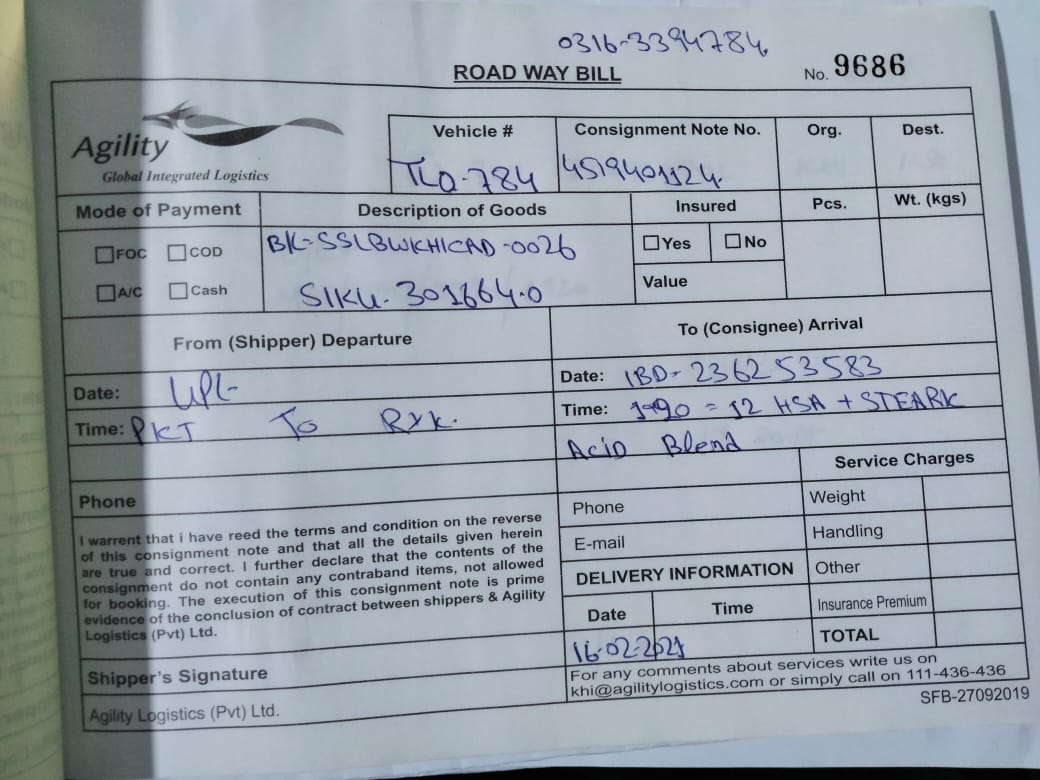 0316-3394784
ROAD WAY BILL
No. 9686
Agility
Global Integrated Logistics
Vehicle #
Consignment Note No.
Org.
Dest.
TLQ-784
4519401124
Mode of Payment
Description of Goods
Insured
Pcs.
Wt. (kgs)
FOC COD
A/C Cash
BK-SSLBWKHICAD-0026
SIKU-301664-0
Yes No
Value
From (Shipper) Departure
To (Consignee) Arrival
Date: UPL
Time: PKT To RYK.
Date: IBD-236253583
Time: = 12 HSA + STEARK
Acid Blend
Phone
I warrent that i have reed the terms and condition on the reverse
of this consignment note and that all the details given herein
are true and correct. I further declare that the contents of the
consignment do not contain any contraband items, not allowed
for booking. The execution of this consignment note is prime
evidence of the conclusion of contract between shippers & Agility
Logistics (Pvt) Ltd.
Shipper's Signature
Agility Logistics (Pvt) Ltd.
Phone
E-mail
DELIVERY INFORMATION
Date Time
16-02-2021
Service Charges
Weight
Handling
Other
Insurance Premium
TOTAL
For any comments about services write us on
khi@agilitylogistics.com or simply call on 111-436-436
SFB-27092019